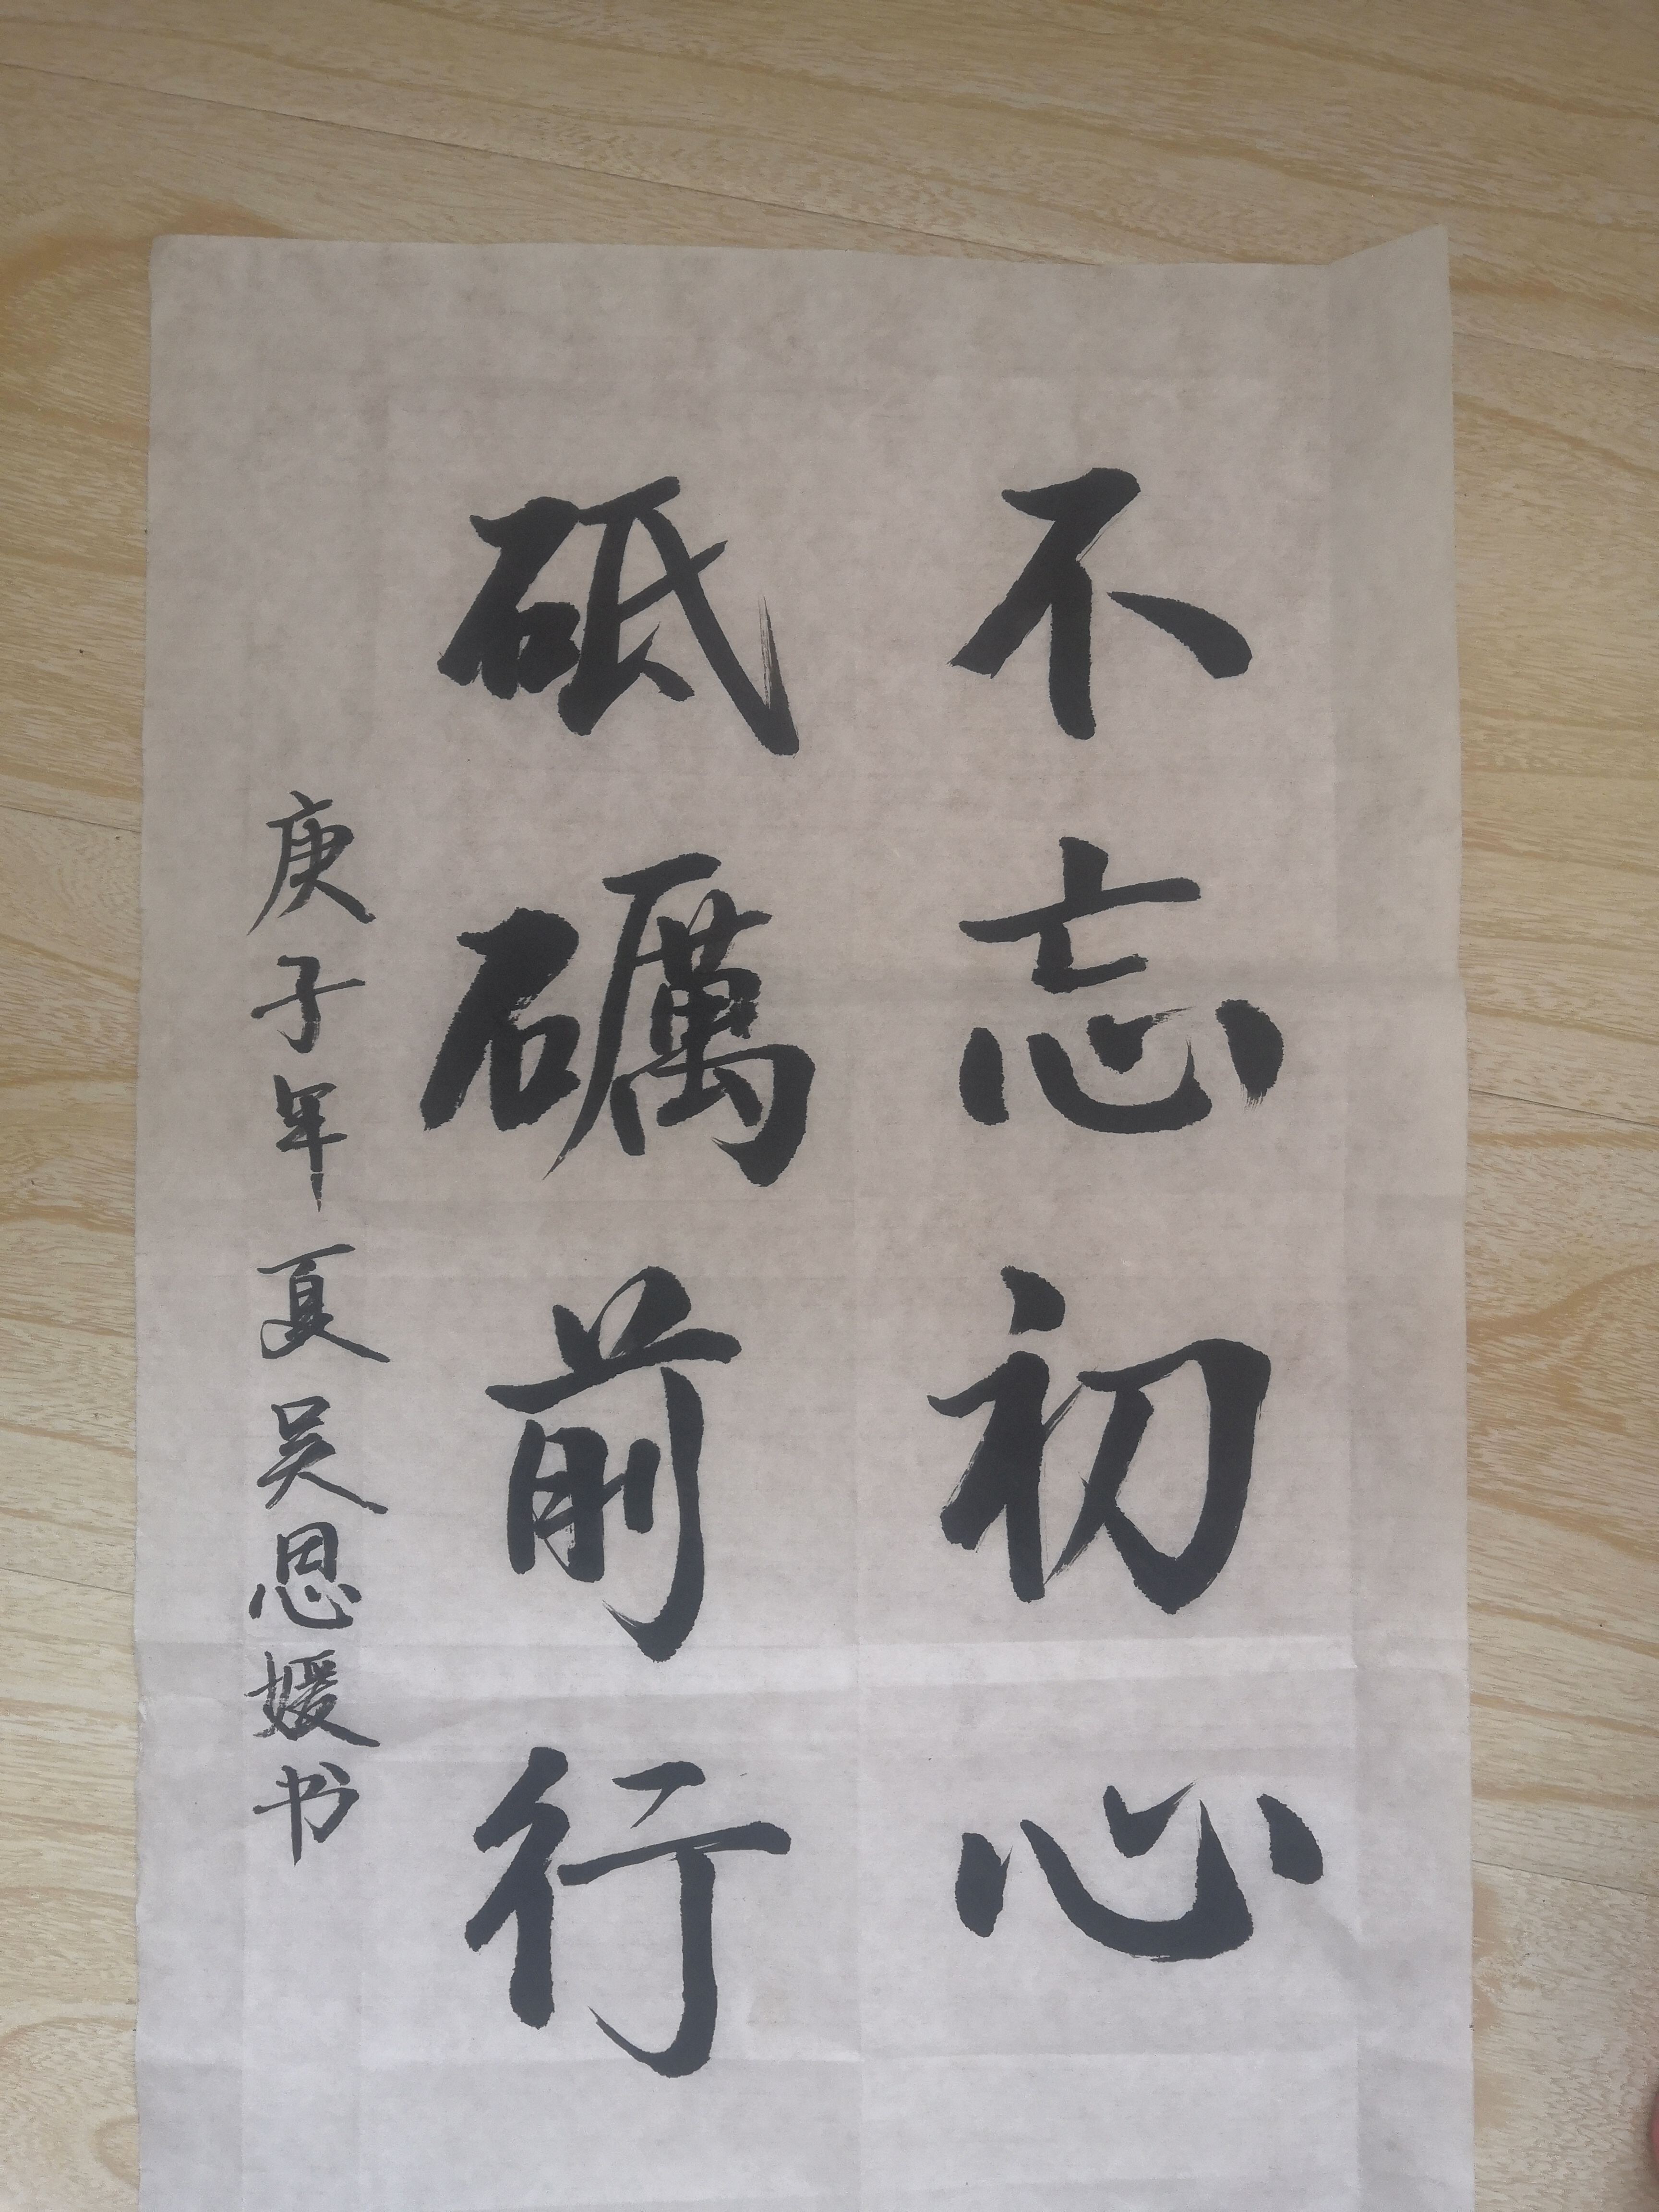 不忘初心
砥礪前行
庚子年夏吴恩媛书